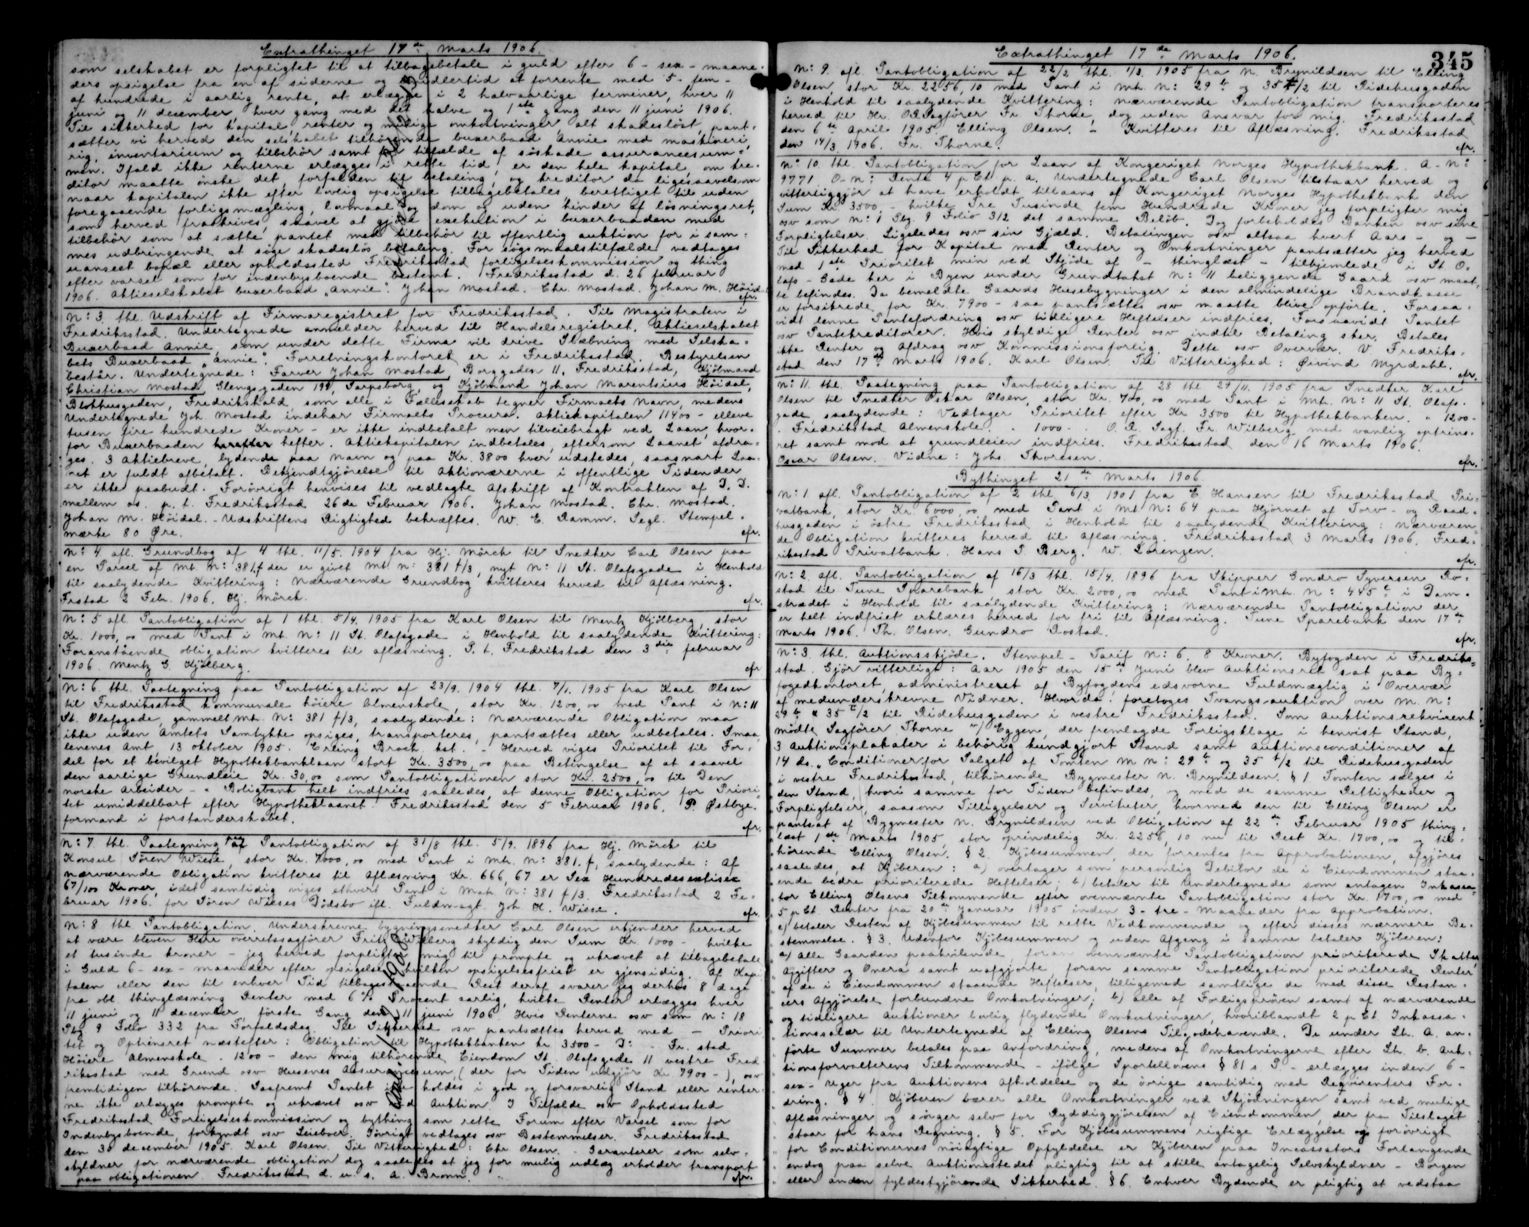 Extrathinget 17de Marts 1906.
som selskabet er forpligtet til at tilbagebetale i guld efter 6 - sex - maane-
ders opsigelse fra en af siderne og imidlertid at forrente med 5 - fem -
af hundrede i aarlig rente, at erlægge i 2 halvaarlige terminer, hver 11
juni og 11 december, hver gang med det halve og 1ste gang den 11 juni 1906.
Til sikkerhed for kapital, renter og mulige omkostninger alt skadesløst, pant-
sætter vi herved den selskabet tilhörende buxerbaad Annie med maskineri,
rig, inventarium og tilbehör samt i tilfælde af söskade assurancesum-
men. Ifald ikke renterne erlægges i rette tid, er den hele kapital, om kre-
ditor maatte önske det forfalden til betaling, og kreditor da ligesaavelsom
naar kapitalen ikke efter lovlig opsigelse tilbagebetales berettiget til uden
foregaaende forligsmægling, lovmaal og dom og uden hinder af lösningsret,
som herved frafaldes, saavel at gjöre exekution i buxerbaaden med
tilbehör som at sætte pantet med tilbehör til offentlig auktion for i sam-
mes udbringende at söge skadeslös betaling. For sögsmaalstilfælde vedtages
uanseet bopæl eller opholdssted Fredriksstad forligelseskommission og thing
efter varsel som for indenbysboende bestemt. Fredriksstad d. 26 februar
1906. Aktieselskabet buxerbaad "Annie": Johan Mostad. Chr. Mostad. Johan M. Höidal.
efr.
N: 3 thl. Udskrift af Firmaregistret for Fredriksstad. Til Magistraten i
Fredriksstad. Undertegnede anmelder herved til Handelsregistret, Aktieselskabet
Buxerbaad Annie, som under dette Firma vil drive Slæbning med Selska-
bets Buxerbaad "Annie". Forretningskontoret er i Fredriksstad. Bestyrelsen
bestaar. Undertegnede: Farver Johan Mostad Borggaden 11, Fredriksstad, Kjöbmand
Christian Mostad, Glengsgaden 199, Sarpsborg og Kjöbmand Johan Marentsius Höidal,
Blokhusgaden, Fredrikshald, som alle i Fællesskab tegner Firmaets Navn, medens
Undertegnede Joh Mostad indehar Firmaets Procura. Aktiekapitalen 11400 - elleve
tusen fire hundrede Kroner - er ikke indbetalt men tilveiebragt ved Laan, hvor-
for Buxerbaaden hefter. Aktiekapitalen indbetales eftersom Laanet afdra-
ges. 3 Aktiebreve, lydende paa Navn og paa Kr. 3800 hver, udstedes, saasnart Laa-
net er fuldt afbetalt. Bekjendtgjörelse til Aktionærerne i offentlige Tidender
er ikke paabudt. Forövrigt henvises til vedlagte Afskrift af Kontrakten af D. D.
mellem os. p. t. Fredriksstad 26de Februar 1906. Johan Mostad. Chr. Mostad.
Johan M. Höidal. - Udskriftens Rigtighed bekræftes. W. C. Damm. Segl. Stempel-
mærke 80 Øre.
efr.
N: 4 afl. Grundbog af 4 thl. 11/5. 1904 fra Hj. Mörch til Snedker Carl Olsen paa
en Parcel af Mt. N: 381.f der er givet Mt N: 381 f/3, nyt N: 11 St. Olafsgade i Henhold
til saalydende Kvittering: Nærværende Grundbog kvitteres herved til Aflæsning.
Frstad 2 Febr. 1906. Hj. Mörch.
efr.
N: 5 afl. Pantobligation af 1 thl. 5/4. 1905 fra Karl Olsen til Mentz Kjölberg, stor
Kr. 1000,00 med Pant i Mt. N: 11 St. Olafsgade i Henhold til saalydende Kvittering:
Foranstående obligation kvitteres til aflæsning. P. t. Fredrikstad den 3die februar
1906. Mentz G. Kjölberg.
efr
N: 6 thl. Paategning paa Pantobligation af 23/9. 1904 thl. 7/1. 1905 fra Karl Olsen
til Fredriksstad kommunale höiere Almenskole, stor Kr. 1200,00 med Pant i N: 11
St. Olafsgade, gammelt Mt. N: 381 f/3, saalydende: Nærværende Obligation maa
ikke uden Amtets Samtykke opsiges, transporteres, pantsættes eller udbetales. Smaa-
lenenes Amt, 13 oktober 1905. Erling Brock kst. - Herved viges Prioritet til For-
del for et bevilget Hypothekbanklaan stort Kr. 3500,00 paa Betingelse af at saavel
den aarlige Grundleie Kr. 30,00 som Pantobligationen stor Kr. 2500,00 til Den
norske Arbeider - & Boligbank helt indfries saaledes, at denne Obligation for Priori-
tet umiddelbart efter Hypotheklaanet. Fredriksstad den 5 Februar 1906. P. Østbye.
formand i forstanderskabet.
efr.
N: 7 thl. Paategning paa Pantobligation af 31/8 thl. 5/9. 1896 fra Hj. Mörch til
Konsul Sören Wiese, stor Kr. 7000,00 med Pant i Mt. N: 381. f, saalydende: Af
nærværende Obligation kvitteres til Aflæsning Kr. 666,67 er Sex Hundredesextisex
67/100 Kroner, idet samtidig viges ethvert Pant i Matr. N: 381 f/3. Fredriksstad 2 Fe-
bruar 1906. for Sören Wieses Dödsbo ifl. Fuldmagt. Joh H. Wiese.
efr
N: 8 thl. Pantobligation. Underskrevne bygningssnedker Carl Olsen erkjender herved
at være bleven Herr overretssagförer Fritz Wilberg skyldig den Sum Kr 1000 - hvilke
et tusinde kroner - jeg herved forpligter mig til prompte og ukrævet at tilbagebetale
i Guld 6 - sex - maaneder efter opsigelse, hvilken opsigelsesfrist er gjensidig. Af Kapi-
talen eller den til enhver Tid tilbagestaaende Rest deraf svarer jeg derhos 8 dage
fra obl thinglæsning Renter med 6% Procent aarlig, hvilke Renter erlægges hver
11 juni og 11 december förste Gang den 11 juni 1906. Hvis Renterne osv som N: 18
Pbg 9 Folio 332 fra Forfaldsdag. Til Sikkerhed osv pantsættes herved med - Priori-
tet og Optrinsret næstefter: Obligation til Hypothekbanken kr 3500 - D: Fr. stad
Höiere Almenskole - 1200 - den mig tilhörende Eiendom St. Olafsgade 11 vestre Fred-
riksstad med Grund osv Husenes Assurancesum (der for Tiden udgjör Kr 7900 -), osv
fremtidigen tilhörende. Saafremt Pantet ikke holdes i god og forsvarlig Stand eller renter-
ne ikke erlægges prompte og ukrævet osv ved Auktion. I Tilfælde osv Opholdssted
Fredriksstad Forligelseskommission og bything som rette Forum efter Varsel som for
Indenbysboende forkyndt osv Leieboer. Iövrigt vedtages osv Bestemmelser. Fredriksstad
den 30 december 1905. Karl Olsen. Til Vitterlighed: Chr Olsen. - Garanterer som selv-
skyldner for nærværende obligation dog saaledes at jeg for mulig udlæg erholder transport
paa obligationen. Fredriksstad d. u. s. A. Brönn.
efr.
Extrathinget 17de Marts 1906.
345
N: 9. afl. Pantobligation af 22/2 thl. 1/3. 1905 fra N. Brynildsen til Elling
Olsen stor Kr. 2256,10 med Pant i Mt. N: 29 b og 35 b/2 til Ridehusgaden
i Henhold til saalydende Kvittering: nærværende Pantobligation transporteres
herved til Hr. O.R.Sagförer Fr Thorne, dog uden Ansvar for mig. Fredriksstad
den 6te April 1905. Elling Olsen. - Kvitteres til Aflæsning. Fredriksstad
den 14/3. 1906. Fr. Thorne.
efr.
N: 10. thl. Pantobligation for Laan af Kongeriget Norges Hypothekbank. A - N:
9771 O - N: Rente 4 p Ct p. a. Undertegnede Carl Olsen tilstaar herved og
vitterliggjör at have erholdt tillaans af Kongeriget Norges Hypothekbank den
Sum Kr 3500 - hvilke Tre Tusinde fem Hundrede Kroner jeg forpligter mig
osv som N: 1 Pbg 9 Folio 312 det samme Belöb. Jeg forbeholder Banken osv sine
Forpligtelser. Ligeledes osv sin Gjæld. Betalingen osv altsaa hvert Aars - og -
Til Sikkerhed for Kapital med Renter og Omkostninger pantsætter jeg herved
med 1ste Prioritet min ved Skjöde af - thinglæst - tilhjemlede i St. O-
lafs - Gade her i Byen under Grundtakst N: 11 beliggende Gaard osv maat-
te befindes. Da bemeldte Gaards Husebygninger i den almindelige Brandkasse
er forsikrede for Kr. 7900 - saa pantsættes osv maatte blive opförte. Forsaa-
vidt denne Panteforedring osv tidligere Heftelser indfries. Forsaavidt Pantet
osv Pantekreditorer. Hvis skyldige Renter osv indtil Betaling sker. Betales
ikke Renter og Afdrag osv Kommissionsforlig. Dette osv Overvær. V. Fredriks-
stad den 17de Marts 1906. Karl Olsen. Til Vitterlighed: Øivind Myrdahl.
efr.
N: 11. thl. Paategning paa Pantobligation af 28 thl. 29/11. 1905 fra Snedker Karl
Olsen til Snedker Oskar Olsen, stor Kr. 400,00 med Pant i Mt. N: 11 St. Olafs-
gade saalydende: Vedtager Prioritet efter Kr. 3500 til Hypothekbanken. - 1200 -
Fredriksstad Almenskole. - 1000 - O. R. Sagf. Fr Wilberg, med vanlig optrins-
ret samt mod at grundleien indfries. Fredriksstad den 16 Marts 1906.
Oscar Olsen. Vidne: Johs. Thoresen.
efr.
Bythinget 21de Marts 1906.
N: 1 afl. Pantobligation af 2 thl. 6/3. 1901 fra C Hansen til Fredriksstad Pri-
vatbank, stor Kr. 6000,00 med Pant i Mt N: 64 paa Hjörnet af Torv- og Raad-
husgaden i östre Fredriksstad i Henhold til saalydende Kvittering: Nærværen-
de Obligation kvitteres herved til Aflæsning. Fredriksstad 3 Marts 1906. Fred-
riksstad Privatbank. Hans P Berg. W. Lorenzen.
efr.
N: 2 afl. Pantobligation af 16/3 thl. 15/4. 1896 fra Skipper Gundro Syversen Ro-
stad til Tune Sparebank stor Kr. 2000,00 med Pant i Mt. N: 445 b i Dam-
strædet i Henhold til saalydende Kvittering: Nærværende Pantobligation der
er helt indfriet erklæres herved for fri til Aflæsning. Tune Sparebank den 17de
Marts 1906. Th. Olsen. Gundro Rostad.
efr.
N: 3 thl. Auktionsskjöde. Stempel - Tarif N: 6. 8 Kroner. Byfogden i Fredriks-
stad. Gjör vitterligt: Aar 1905 den 15de Juni blev Auktionsret sat paa By-
fogedkontoret administreret af Byfogdens edsvorne Fuldmægtig i Overvær
af medunderskrevne Vidner. Hvorda: foretoges Tvangsauktion over M. N:
29 b & 35 b/2 til Ridehusgaden i vestre Fredriksstad. Som Auktionsrekvirent
mödte Sagförer Thorne v/ Eggen, der fremlagde Forligsklage i henvist Stand,
3 Auktionsplakater i behörig kundgjort Stand samt Auktionsconditioner af
14 ds. "Conditioner for Salget af Tomten M N: 29 b og 35 b/2 til Ridehusgaden
i vestre Fredriksstad, tilhörende Bygmester N. Brynildsen. § 1 Tomten sælges i
den Stand, hvori samme for Tiden befindes, og med de samme Rettigheder og
Forpligtelser, saasom Tilliggelser og Servituter, hvormed den til Elling Olsen er
pantsat af Bygmester N. Brynildsen ved Obligation af 22de Februar 1905 thing-
læst 1ste Marts 1905, stor oprindelig Kr. 2256,10 nu til Rest Kr. 1700,00 og til-
hörende Elling Olsen. § 2. Kjöbesummen, der forrentes fra Approbationen, afgjöres
saaledes, at Kjöberen: a) overtager som personlig Debitor de i Eiendommen staa-
ende bedre prioriterede Heftelser; b) betaler til Undertegnede som antagen Inkassa-
tor Elling Olsens Tilkommende efter ovennævnte Pantobligation stor Kr. 1700,00 med
5 p Ct. Renter fra 20de Januar 1905 inden 3 - tre - Maaneder fra Approbation.
c) betaler Resten af Kjöbesummen til rette Vedkommende og efter disses nærmere Be-
stemmelse. § 3. Udenfor Kjöbesummen og uden Afgang i samme betaler Kjöberen:
a) Alle Gaarden paahvilende foran ovennævnte Pantobligation prioriterede Skatter,
Afgifter og Onera samt uafgjorte, foran samme Pantobligation prioriterede Renter
af de i Eiendommen staaende Heftelser, tilligemed samtlige de med disse Restan-
cers Afgjörelse forbundne Omkostninger; b) alle af Forligsprøven samt af nærværende
og tidligere Auktioner lovlig flydende Omkostninger, hvoriblandt 2 p Ct. Inkassa-
tionssalær til Undertegnede af Elling Olsens Tilgodehavende. De under Lt. A. an-
förte Summer betales paa Anfordring, medens af Omkostningerne efter Lt. b. Auk-
tionsforvalterens Tilkommende - ifölge Sportellovens § 81 s. P - erlægges inden 6 -
sex - Uger fra Auktionens Afholdelse og de övrige samtidig med Reqvirentens For-
dring. § 4. Kjöberen bærer alle Omkostninger ved Skjödningen samt ved mulige
Aflæsninger og sörger selv for Ryddiggjörelsen af Eiendommen, der fra Tilslaget
staar for hans Regning. § 5. For Kjöbesummens rigtige Erlæggelse og forövrigt
for Conditionernes nöiagtige Opfyldelse er Kjöberen paa Incassators Forlangende
endog paa selve Auktionsstedet pligtig til at stille antagelig Selvskyldner - Borgen
eller anden fyldestgjörende Sikkerhed. § 6. Enhver Bydende er pligtig at vedstaa